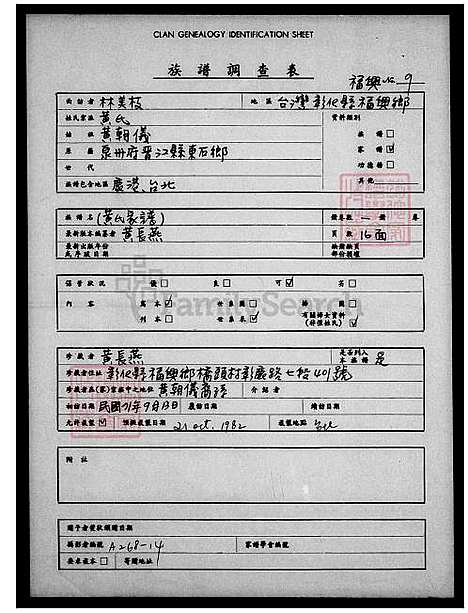 CLAN GENEALOGY IDENTIFICATION SHEET
族譜調查表
福興 No. 9
面訪者 林美枝 地區 台灣彰化縣福興鄉
姓氏宗族 黃氏 資料類別
始祖 黃朝儀 族譜□
原籍 泉州府晋江縣東石鄉 家譜☑
世代 功德榜□
族譜包含地區 鹿港、台北 其他
族譜名 (黃氏家譜) 一
最新版本編纂者 黃長燕 頁數 16面
最新出版年份
或序跋日期
保管狀況 優□ 良□ 可☑ 劣□
內容 寫本☑ 世系圖□ 掃圖□
刊本□ 世系表☑ 有關婦女資料☑
FamilySearch
珍藏者 黃長燕 是否列入本族譜 是
珍藏者住址 彰化縣福興鄉橋頭村彰鹿路七段401號
珍藏者在(家)宗族中之地位 黃朝儀裔孫 介紹者
初訪日期 民國71年9月13日 複訪日期 續訪日期
允許複製☑ 預擬複製日期 21 Oct. 1982 複製地點
附註
攝影者編號 A268-14 家譜學會編號
要求複本□ 寄贈地址